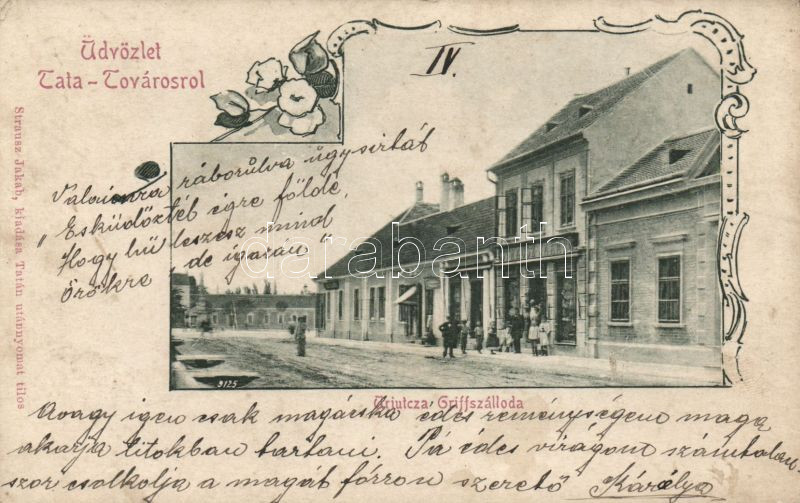 Üdvözlet
Tata-Továrosrol
IV.
Strausz Jakab, kiadása Tatán utánnyomat tilos
ráborulva úgy sirtál
„Esküdöztél égre földé,
Hogy hű leszesz mind
örökre de igazán"
darabanth
9125
Uriutcza Griffszálloda
Avagy igen csak magácska édes reménységem maga
akarja titokban tartani. Pá édes virágom számtalan
szor csolkolja a magát forron szerető Károlya